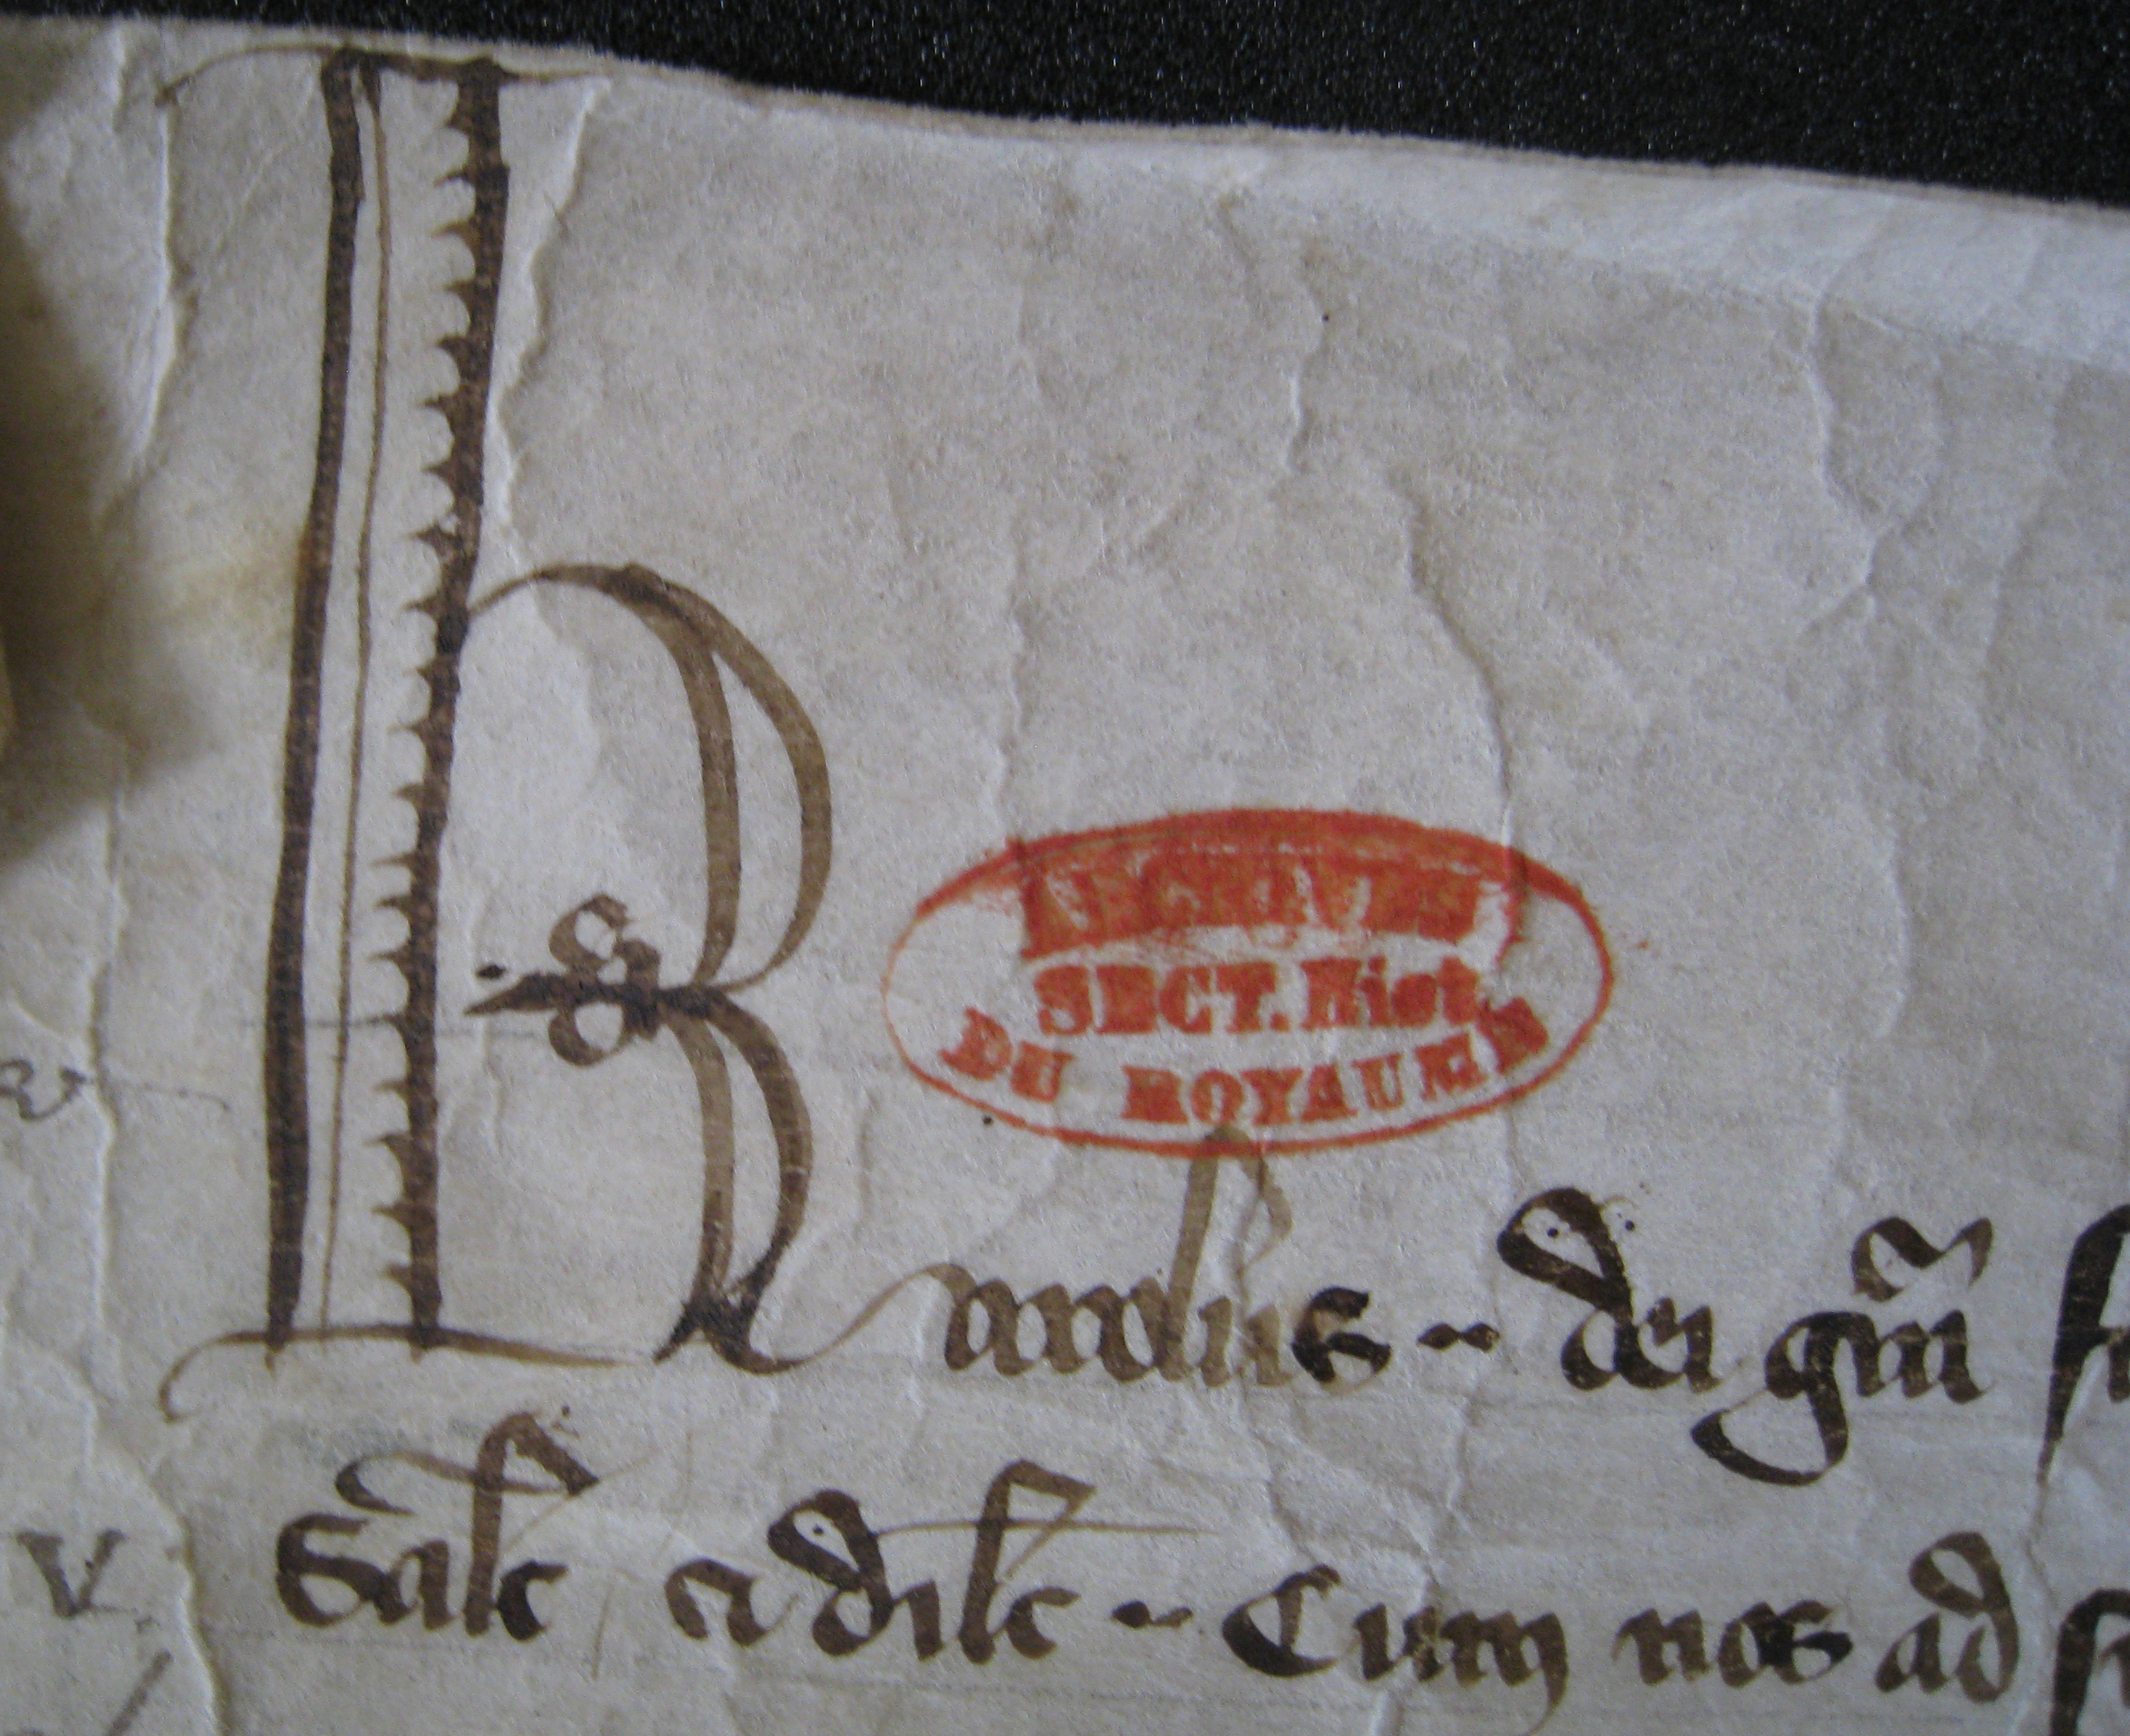 ARCHIVES
SECT. Hist
DU ROYAUME
Karolus·· dei grã
v Salt et dilt·· Cum nos ad